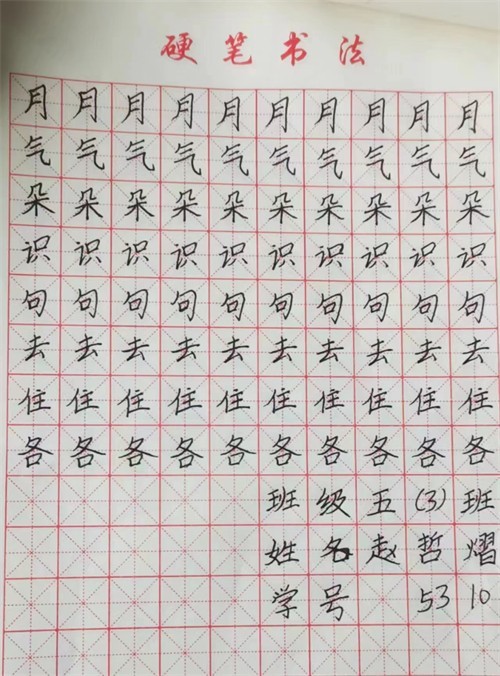 硬笔书法
月月月月月月月月月月
气气气气气气气气气气
朵朵朵朵朵朵朵朵朵朵
识识识识识识识识识识
句句句句句句句句句句
去去去去去去去去去去
住住住住住住住住住住
各各各各各各各各各各
班级五(3)班
姓名赵哲熠
学号 5310